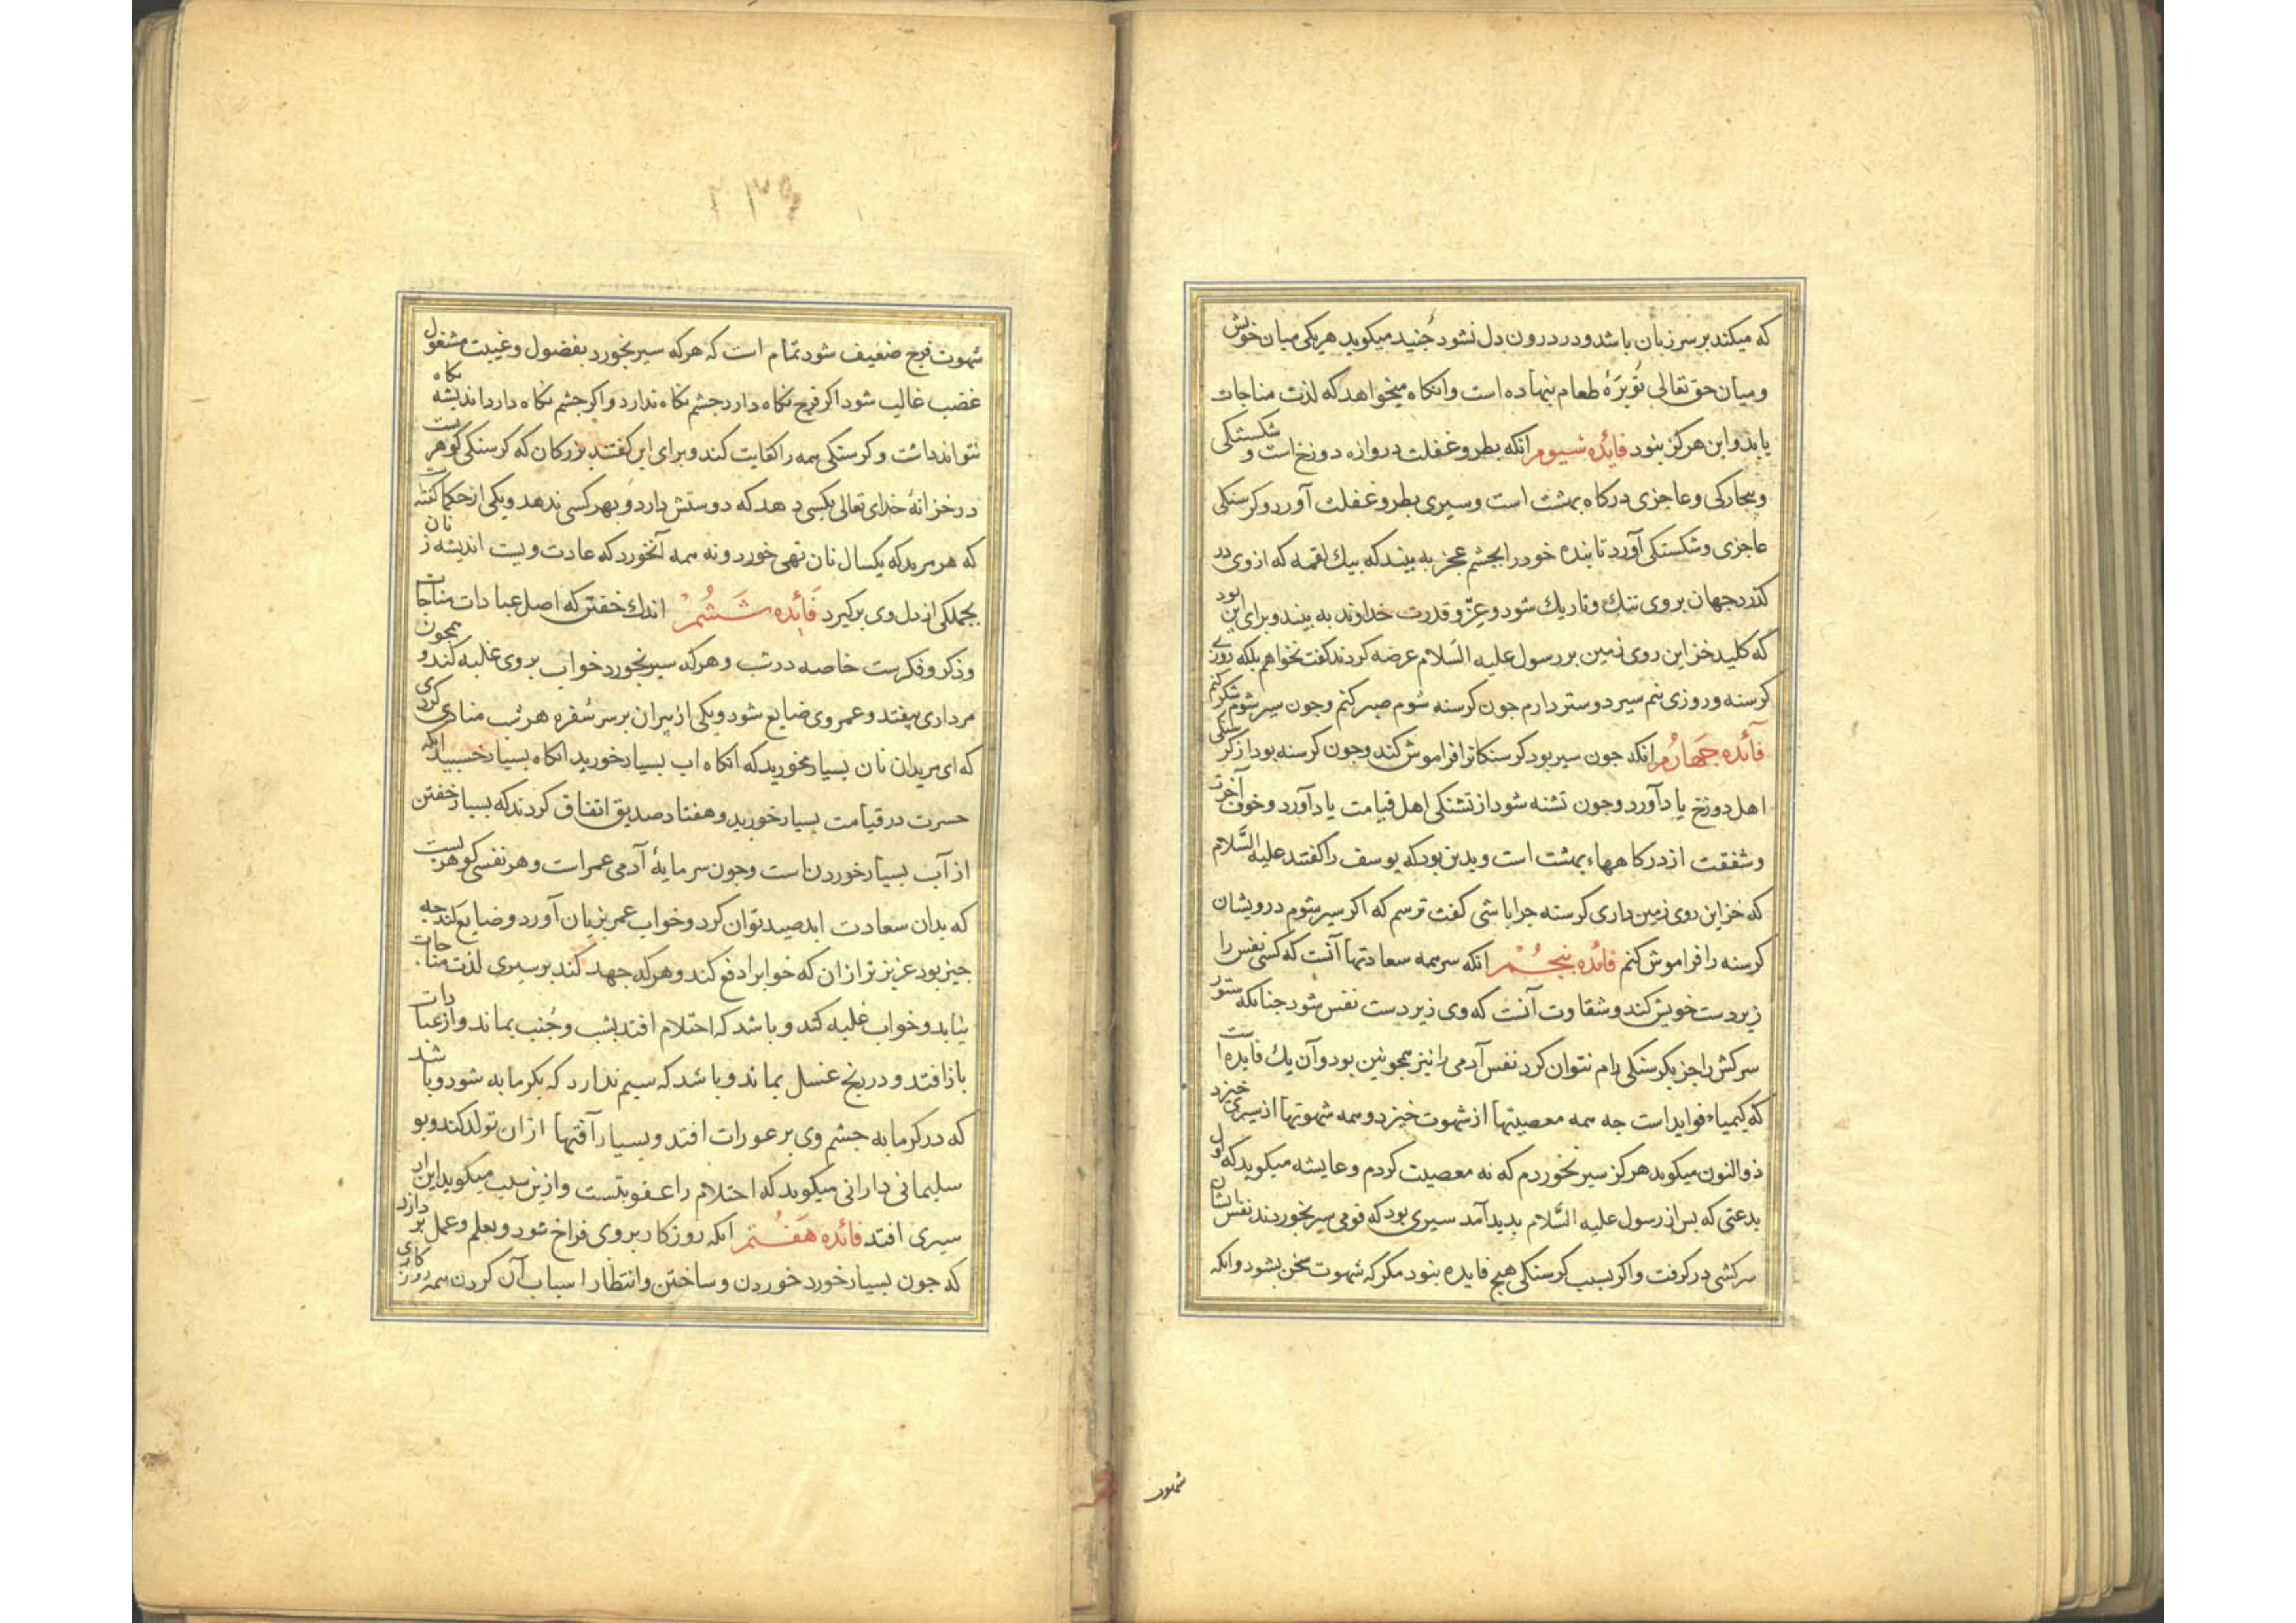 که میکند بر سر زبان باشد و در درون دل نشود جنید میکوید هر یکی میان خویش
و میان حق تعالی توبرهٔ طعام بنهاده است و انکاه میخواهد که لذت مناجات
یابد و این هرکز نبود فائده سیوم انکه بطر و غفلت دروازه دوزخ است و شکستکی
و بیجارکی و عاجزی درکاه بهشت است و سیری بطر و غفلت آورد و کرسنکی
عاجزی و شکستکی آورد تا بنده خود را بجشم عجز به بیند که بیك لقمه که از وی در
کذرد جهان بر وی تنك و تاریك شود و عزّ و قدرت خداوند به بیند و برای این بود
که کلید خزاین روی زمین بر رسول علیه السلام عرضه کردند کفت نخواهم بلکه روزی
کرسنه و روزی نیم سیر دوستر دارم جون کرسنه شوم صبر کنم و جون سیر شوم شکر کنم
فائده جهارم انکه جون سیر بود کرسنکانرا فراموش کند و جون کرسنه بود از کرسنکی
اهل دوزخ یاد آورد و جون تشنه شود از تشنکی اهل قیامت یاد آورد و خوف آخرت
و شفقت از درکاهها، بهشت است و بدین بود که یوسف را کفتند علیه السّلام
که خزاین روی زمین داری کرسنه جرا باشی کفت ترسم که اکر سیر شوم درویشان
کرسنه را فراموش کنم فائده پنجم انکه سر همه سعادتها آنست که کسی نفس را
زیر دست خویش کند و شقاوت آنست که وی زیر دست نفس شود جنانکه ستور
سرکش را جز بکرسنکی رام نتوان کرد نفس آدمی را نیز همجونین بود و آن یك فایده است
که کیمیاء فواید است جه همه معصیتها از شهوت خیزد و همه شهوتها از سیری خیزد
ذوالنون میکوید هرکز سیر نخوردم که نه معصیت کردم و عایشه میکوید که اول
بدعتی که بس از رسول علیه السّلام بدید آمد سیری بود که قومی سیر بخوردند نفس ایشان
سرکشی در کرفت و اکر بسبب کرسنکی هیج فایده نبود مکر که شهوت سخن بشود و انکه
شهوت
شهوت فرج ضعیف شود تمام است که هرکه سیر بخورد بفضول و غیبت مشغول
غضب غالب شود اکر فرج نکاه دارد جشم نکاه ندارد و اکر جشم نکاه دارد اندیشه نکاه
نتواند داشت و کرسنکی همه را کفایت کند و برای این کفتند بزرکان که کرسنکی کوهریست
در خزانهٔ خدای تعالی بکسی دهد که دوستش دارد و بهر کسی ندهد و یکی از حکما کفته
که هر مرید که یکسال نان تهی خورد و نه همه آنخورد که عادت ویست اندیشه زنان
بجملکی از دل وی برکیرد فائده ششم اندك خفتن که اصل عبادات مناجات
و ذکر و فکرست خاصه در شب و هرکه سیر بخورد خواب بر وی غلبه کند و همجون
مرداری بیفتد و عمر وی ضایع شود و یکی از پیران بر سر سُفره هر شب منادی کردی
که ای مریدان نان بسیار مخورید که انکاه اب بسیار خورید انکاه بسیار خسبید انکه
حسرت در قیامت بسیار خورید و هفتاد صدیق اتفاق کردند که بسیار خفتن
از آب بسیار خوردن است و جون سرمایهٔ آدمی عمر است و هر نفسی کوهریست
که بدان سعادت ابد صید توان کرد و خواب عمر بزیان آورد و ضایع کند جه
جیز بود عزیز تر از ان که خوابرا دفع کند و هرکه جهد کند بر سیری لذت مناجات
نیابد و خواب غلبه کند و باشد که احتلام افتد بشب و جُنب بماند و از عبادات
باز افتد و در رنج غسل بماند و باشد که سیم ندارد که بکرمابه شود و باشد
که در کرمابه جشم وی بر عورات افتد و بسیار آفتها از ان تولد کند و بو
سلیمانی دارانی میکوید که احتلام را عقوبتست و ازین سبب میکوید این از
سیری افتد فائده هفتم انکه روزکار بر وی فراخ شود و بعلم و عمل پردازد
که جون بسیار خورد خوردن و ساختن و انتظار اسباب آن کردن همه روزکاری